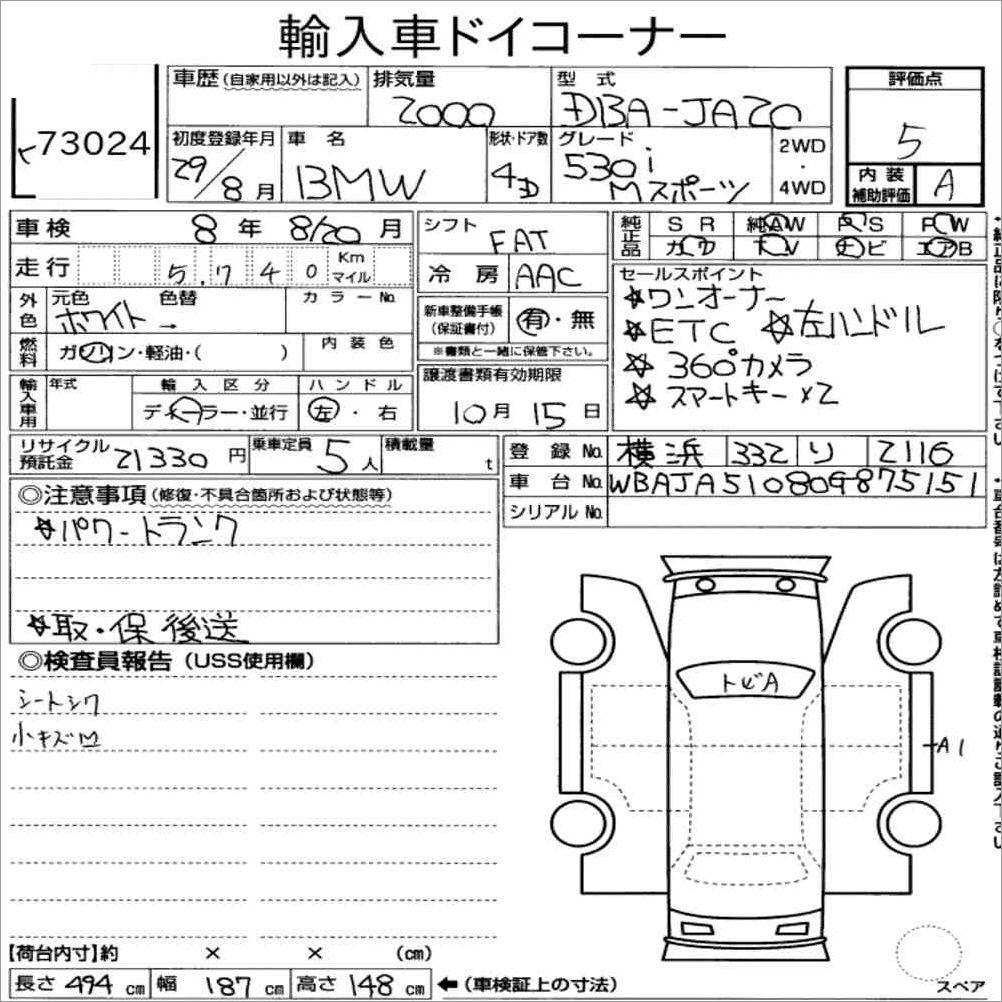 輸入車ドイコーナー
73024
車歴 (自家用以外は記入) 排気量 型式 評価点
2000 DBA-JA20 5
初度登録年月 車名 形状・ドア数 グレード 2WD・4WD
29/8月 BMW 4D 530i Mスポーツ
内装補助評価 A
車検 8年 8/20月 シフト FAT
純正品 SR 純AW PS PW
カワ TV ナビ エアB
走行 5,740 Km マイル 冷房 AAC
外色 元色 色替 カラーNo.
ホワイト →
燃料 ガソリン・軽油・( ) 内装色
新車整備手帳(保証書付) 有・無
※書類と一緒に保管下さい。
セールスポイント
☆ワンオーナー
☆ETC ☆左ハンドル
☆360°カメラ
☆スマートキー×2
輸入車用 年式 輸入区分 ハンドル
ディーラー・並行 左・右
譲渡書類有効期限
10月15日
リサイクル預託金 21330円 乗車定員 5人 積載量 t
登録No. 横浜 332 り 2116
車台No. WBAJA510809875151
シリアルNo.
◎注意事項 (修復・不具合箇所および状態等)
☆パワートランク
☆取・保 後送
◎検査員報告 (USS使用欄)
シートシワ
小キズ凹
トビA
A1
【荷台内寸】約 × × (cm)
長さ 494 cm 幅 187 cm 高さ 148 cm ←(車検証上の寸法)
スペア